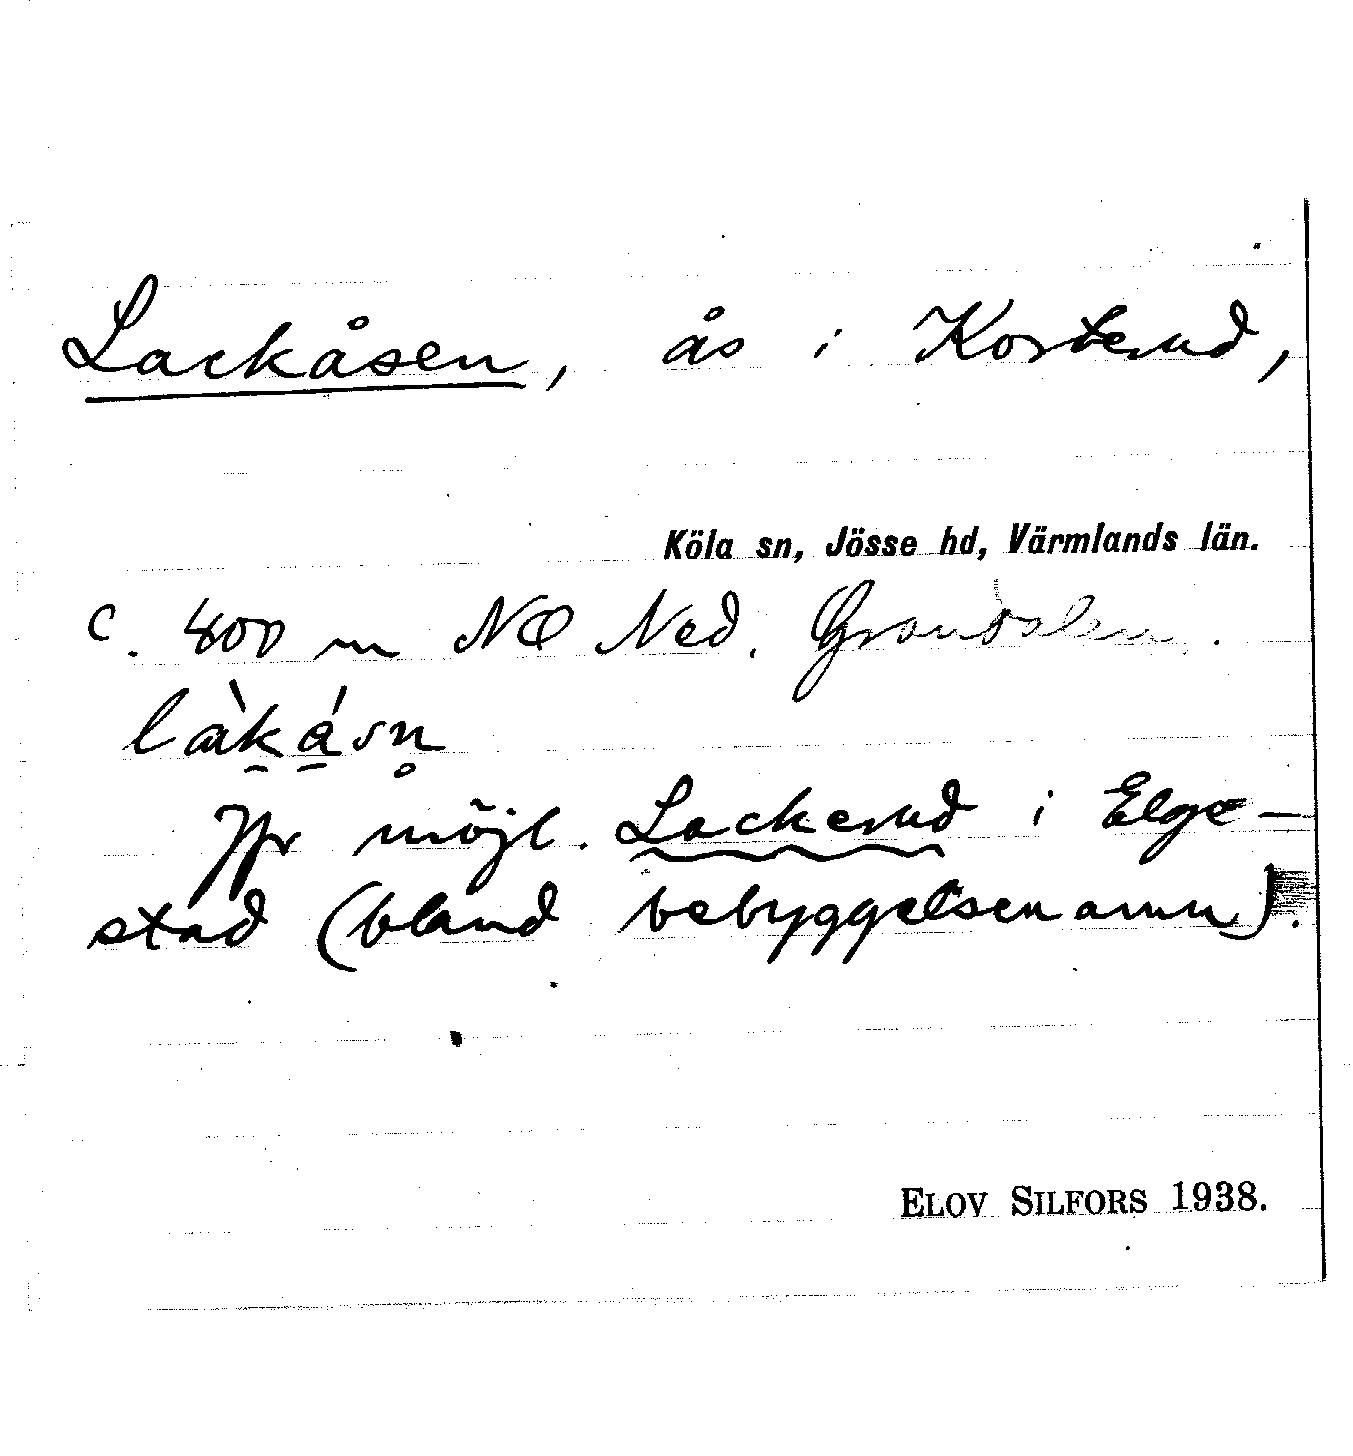 Lackåsen, ås i Korterud,
Köla sn, Jösse hd, Värmlands län.
c. 800 m NO Ned. Grandalen.
làkásn̥
Jfr möjl. Lackerud i Elge-
stad (bland bebyggelsenamn).
ELOV SILFORS 1938.